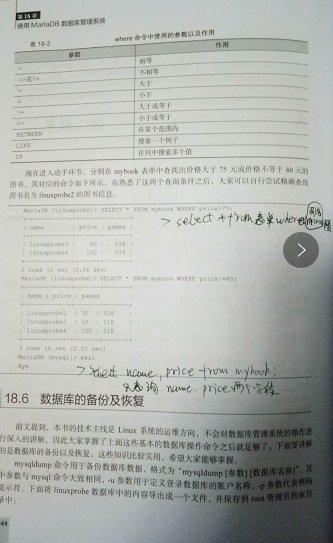 第18章
使用MariaDB数据库管理系统
表18-3 where命令中使用的参数以及作用
参数 作用
= 相等
<>或!= 不相等
> 大于
< 小于
>= 大于或等于
<= 小于或等于
BETWEEN 在某个范围内
LIKE 搜索一个例子
IN 在列中搜索多个值
现在进入动手环节。分别在 mybook 表单中查找出价格大于 75 元或价格不等于 80 元的
图书，其对应的命令如下所示。在熟悉了这两个查询条件之后，大家可以自行尝试精确查
找图书名为 linuxprobe2 的图书信息。
MariaDB [linuxprobe]> SELECT * FROM mybook WHERE price>75;
| name | price | pages |
| linuxprobe3 | 80 | 518 |
| linuxprobe4 | 100 | 518 |
2 rows in set (0.06 sec)
MariaDB [linuxprobe]> SELECT * FROM mybook WHERE price!=80;
| name | price | pages |
| linuxprobe1 | 30 | 518 |
| linuxprobe2 | 50 | 518 |
| linuxprobe4 | 100 | 518 |
3 rows in set (0.01 sec)
MariaDB [mysql]> exit
Bye
> select * from 表单 where
> select name, price from mybook;
只查询 name. price 两个字段
18.6 数据库的备份及恢复
前文提到，本书的技术主线是 Linux 系统的运维方向，不会对数据库管理系统的操作进
行深入的讲解，因此大家掌握了上面这些基本的数据库操作命令之后就足够了。下面要讲解
的是数据库的备份以及恢复，这些知识比较实用，希望大家能够掌握。
mysqldump 命令用于备份数据库数据，格式为“mysqldump [参数] [数据库名称]”。其
中参数与 mysql 命令大致相同，-u 参数用于定义登录数据库的账户名称，-p 参数代表密码
提示符。下面将 linuxprobe 数据库中的内容导出成一个文件，并保存到 root 管理员的家目
录中：
44